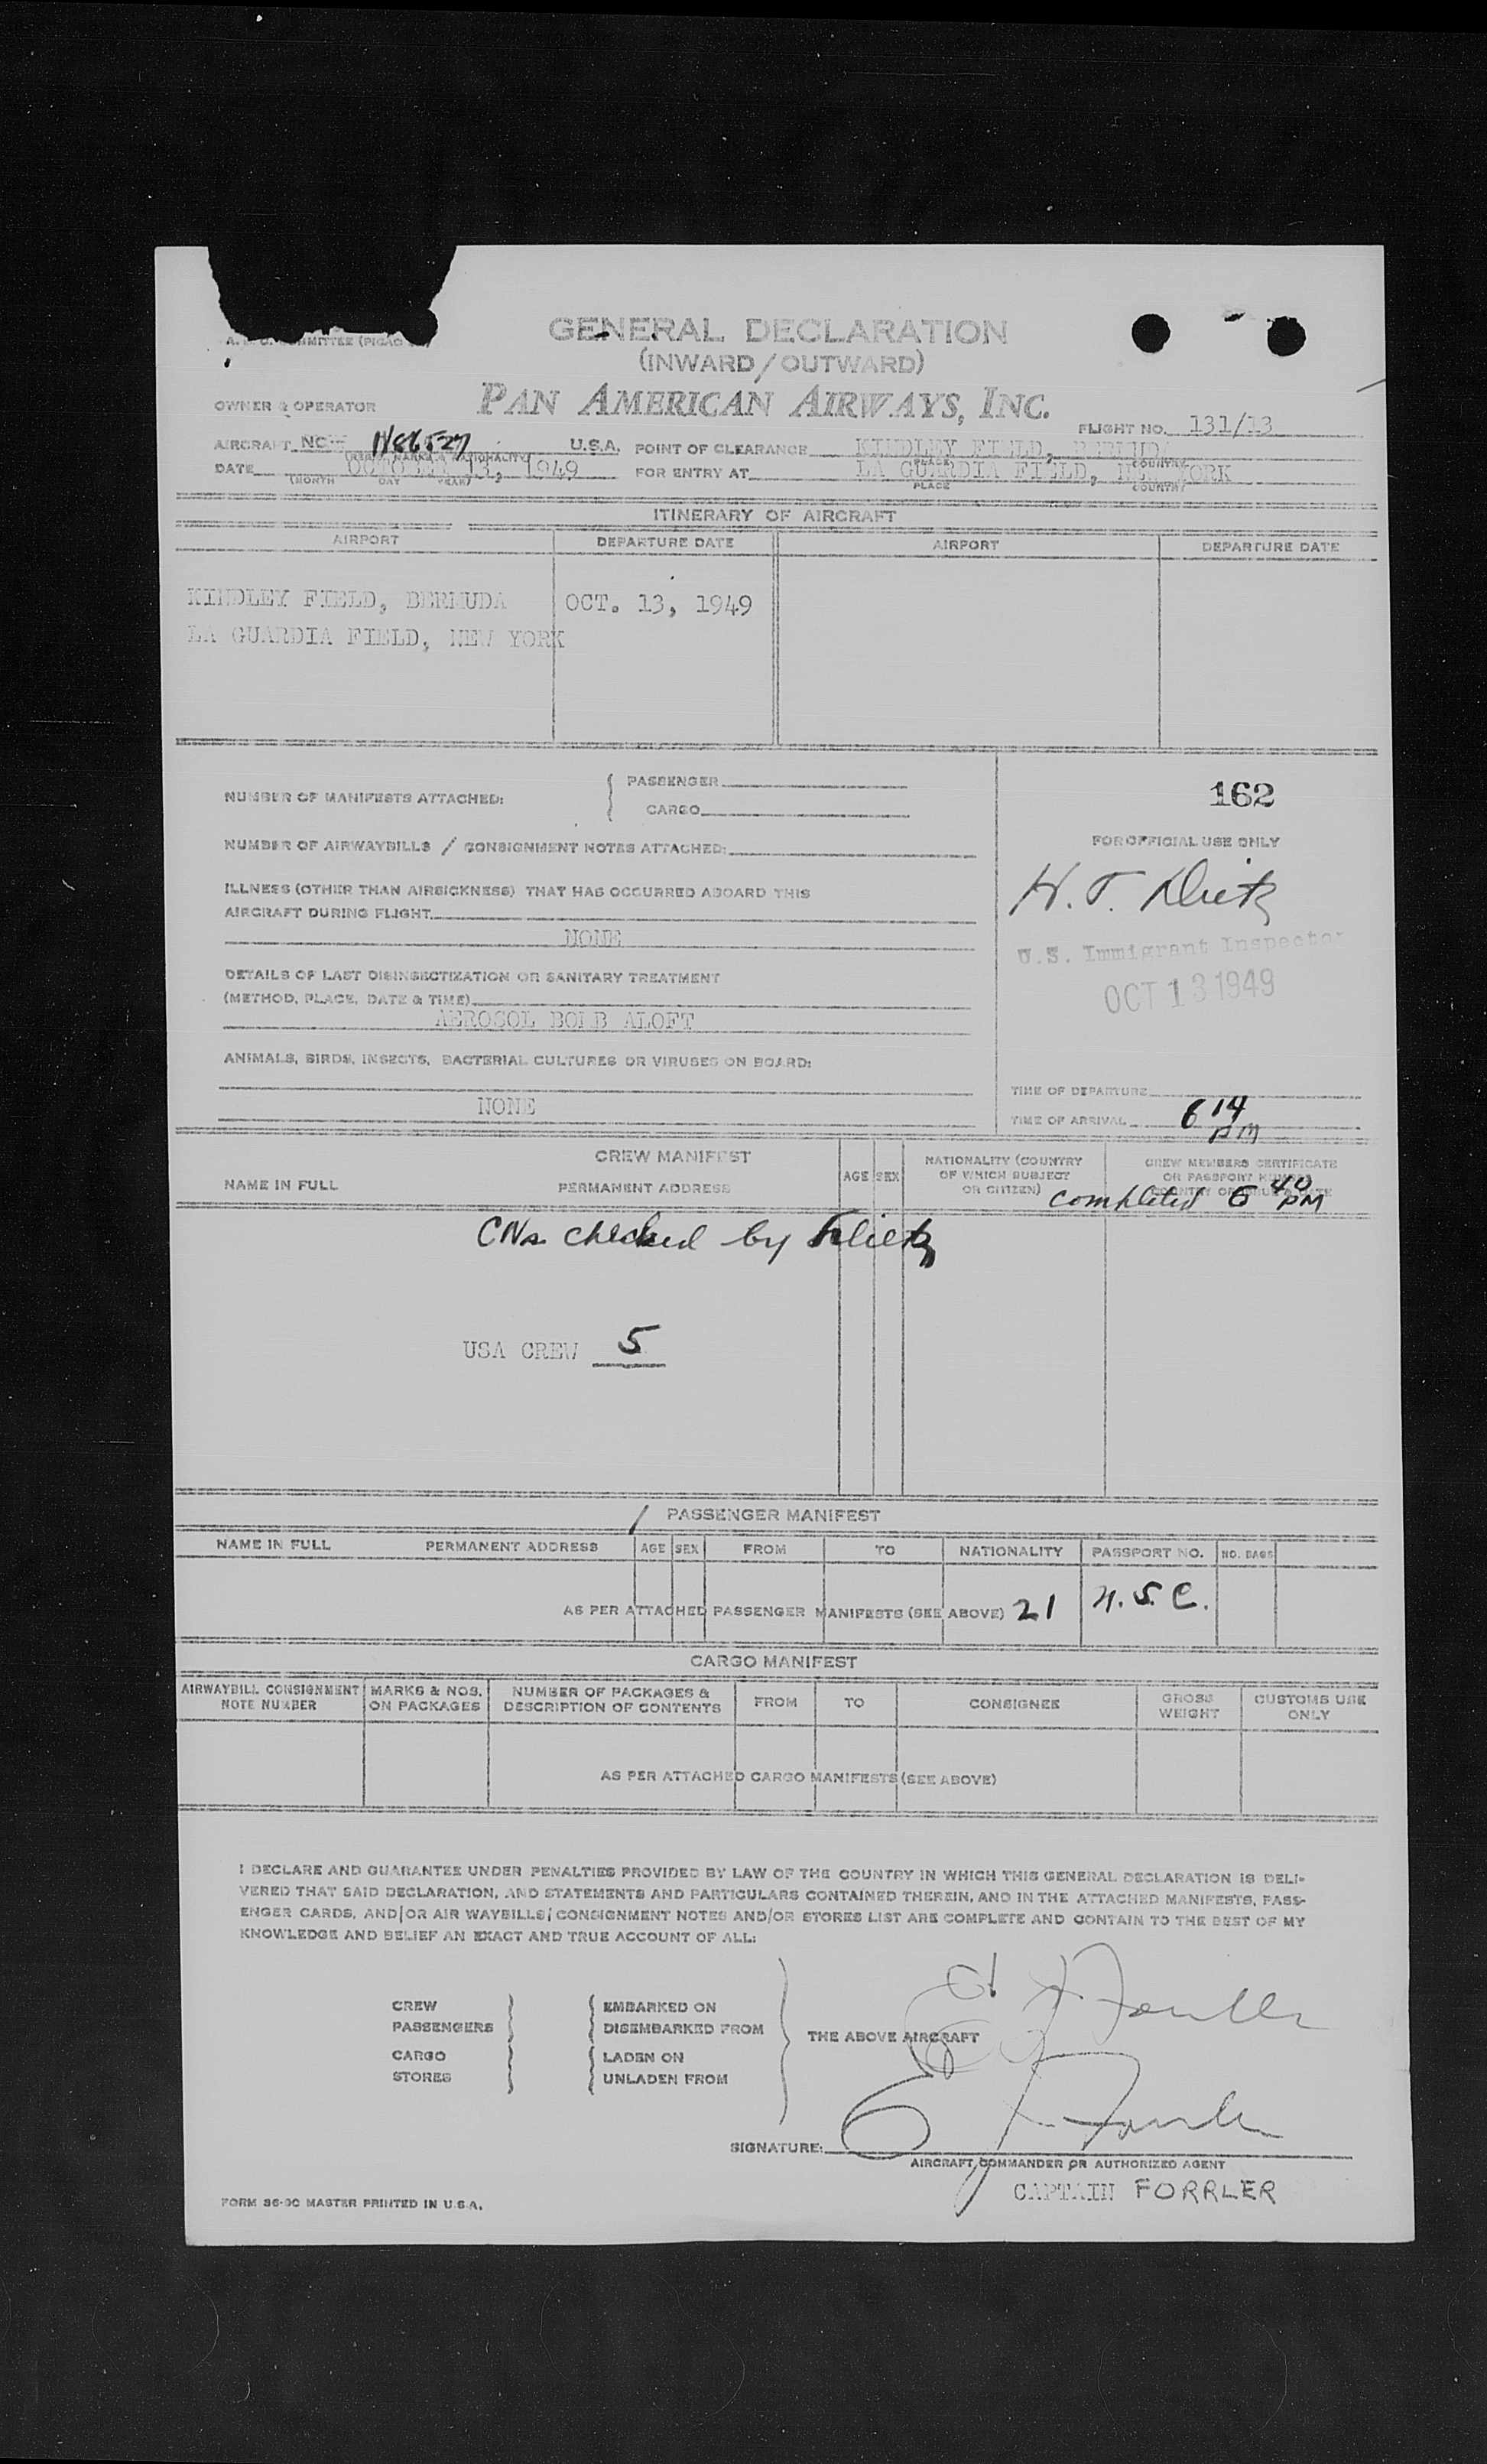 GENERAL DECLARATION
(INWARD/OUTWARD)
OWNER & OPERATOR PAN AMERICAN AIRWAYS, INC.
FLIGHT NO. 131/13
AIRCRAFT NC N88527 U.S.A. POINT OF CLEARANCE KINDLEY FIELD, BERMUDA
(REG'N. MARKS & NATIONALITY) PLACE COUNTRY
DATE OCTOBER 13, 1949 FOR ENTRY AT LA GUARDIA FIELD, NEW YORK
(MONTH DAY YEAR) PLACE COUNTRY
ITINERARY OF AIRCRAFT
AIRPORT DEPARTURE DATE AIRPORT DEPARTURE DATE
KINDLEY FIELD, BERMUDA OCT. 13, 1949
LA GUARDIA FIELD, NEW YORK
NUMBER OF MANIFESTS ATTACHED: { PASSENGER
CARGO
162
NUMBER OF AIRWAYBILLS / CONSIGNMENT NOTES ATTACHED:
FOR OFFICIAL USE ONLY
ILLNESS (OTHER THAN AIRSICKNESS) THAT HAS OCCURRED ABOARD THIS
AIRCRAFT DURING FLIGHT
NONE
H. T. Dietz
U.S. Immigrant Inspector
OCT 13 1949
DETAILS OF LAST DISINSECTIZATION OR SANITARY TREATMENT
(METHOD, PLACE, DATE & TIME)
AEROSOL BOMB ALOFT
ANIMALS, BIRDS, INSECTS, BACTERIAL CULTURES OR VIRUSES ON BOARD:
NONE
TIME OF DEPARTURE
TIME OF ARRIVAL 6 14 PM
CREW MANIFEST
NAME IN FULL PERMANENT ADDRESS AGE SEX NATIONALITY (COUNTRY OF WHICH SUBJECT OR CITIZEN) CREW MEMBERS CERTIFICATE OR PASSPORT NUMBER
completed 6 40 PM
CNs checked by Dietz
USA CREW 5
PASSENGER MANIFEST
NAME IN FULL PERMANENT ADDRESS AGE SEX FROM TO NATIONALITY PASSPORT NO. NO. BAGS
AS PER ATTACHED PASSENGER MANIFESTS (SEE ABOVE) 21 U.S.C.
CARGO MANIFEST
AIRWAYBILL CONSIGNMENT NOTE NUMBER MARKS & NOS. ON PACKAGES NUMBER OF PACKAGES & DESCRIPTION OF CONTENTS FROM TO CONSIGNEE GROSS WEIGHT CUSTOMS USE ONLY
AS PER ATTACHED CARGO MANIFESTS (SEE ABOVE)
I DECLARE AND GUARANTEE UNDER PENALTIES PROVIDED BY LAW OF THE COUNTRY IN WHICH THIS GENERAL DECLARATION IS DELI-
VERED THAT SAID DECLARATION, AND STATEMENTS AND PARTICULARS CONTAINED THEREIN, AND IN THE ATTACHED MANIFESTS, PASS-
ENGER CARDS, AND/OR AIR WAYBILLS/CONSIGNMENT NOTES AND/OR STORES LIST ARE COMPLETE AND CONTAIN TO THE BEST OF MY
KNOWLEDGE AND BELIEF AN EXACT AND TRUE ACCOUNT OF ALL:
CREW EMBARKED ON
PASSENGERS DISEMBARKED FROM
THE ABOVE AIRCRAFT
CARGO LADEN ON
STORES UNLADEN FROM
SIGNATURE:
AIRCRAFT COMMANDER OR AUTHORIZED AGENT
CAPTAIN FORRLER
FORM 36-3C MASTER PRINTED IN U.S.A.